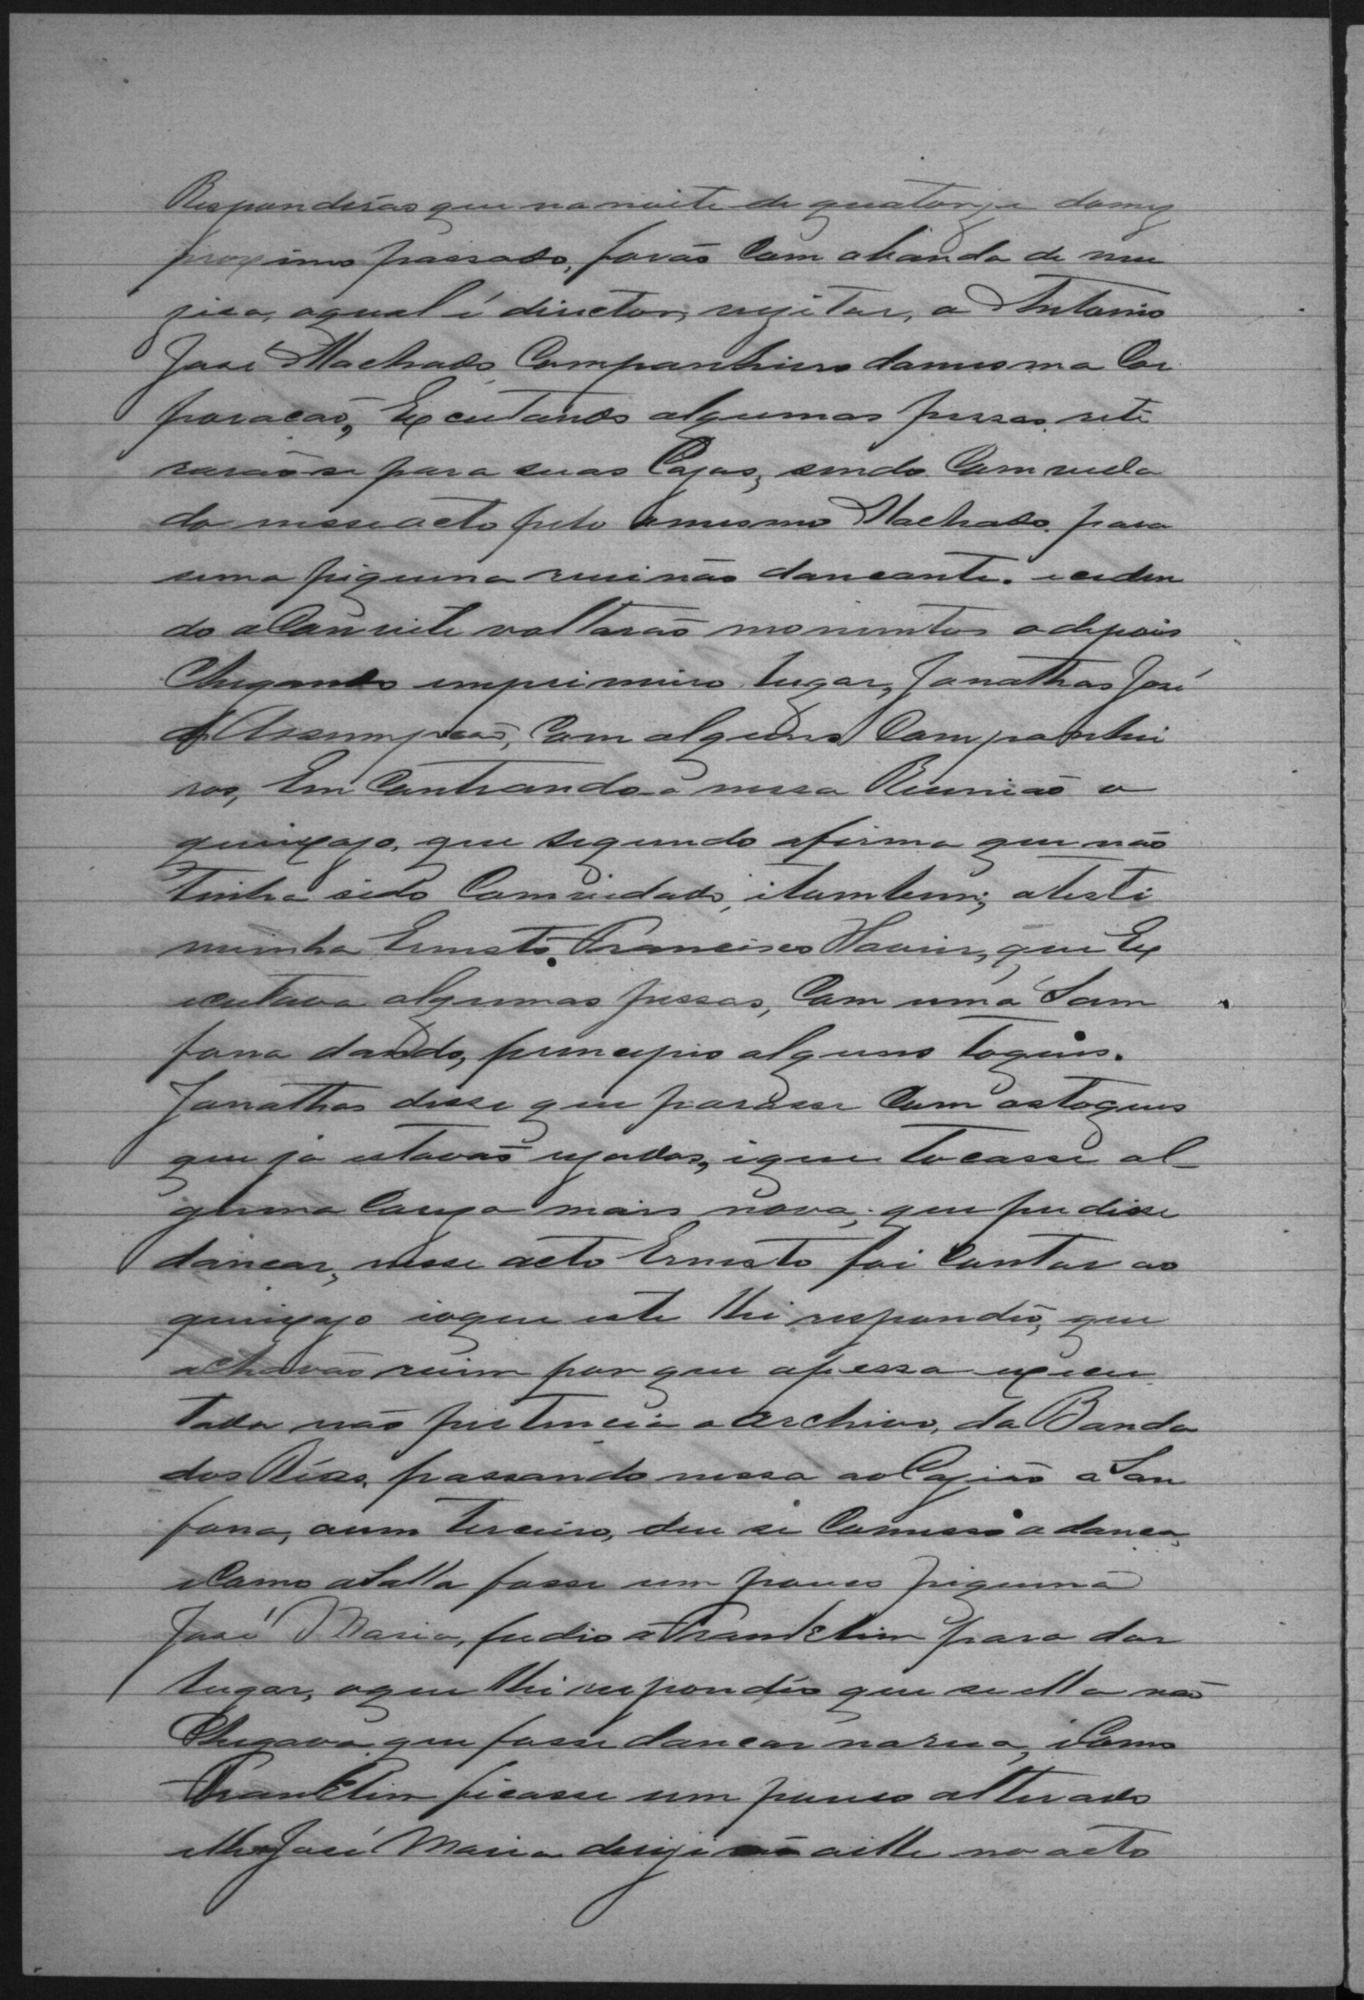 Responderão que na noite de quatorze do mez
proximo passado, forão Com abanda de mu
zica, aqual é director, vizitar, a Antonio
José Machado, Companhiero damesma Cor
poracão, Executando algumas pessas, reti
rarão se para suas Cazas, sendo Comvida
do nesse acto pelo omesmo Machado para
uma piquena reuinão dancante. e ceden
do aConvite voltarão momentos adepois
Chegando emprimeiro lugar, Jonathas José
d'Assumpcão, Com alguns Companhei
ros, Em Contrando - nessa Reunião o
queixozo, que segundo afirma que não
tinha sido Comvidado, itambem, atesti
munha Ernesto Francisco Xavier, que Ex
ecutava algumas pessas, Com uma Sam
fona dando, principio alguns toques.
Jonathas disse que parasse Com ostoques
que ja estavão uzados, eque tocasse al-
guma Couza mais nova, que pudisse
dancar, nesse acto Ernesto foi Contar ao
queixozo eoque este lhi respondêo, que
achavão ruim porque apessa execu
tada não pertencia a archivo, da Banda
dos Réos, passando nessa aoCazião a San
fona, aum terceiro, deu se Comesso a danca,
eComo aSalla fosse um pouco piquena
José Maria, pedio a Franklim para dar
lugar, oque lhi respondêo que se ella não
Chegava que fosse dancar narua, eComo
Franklim ficasse um pouco alterado
elle José Maria derijio aelle no acto